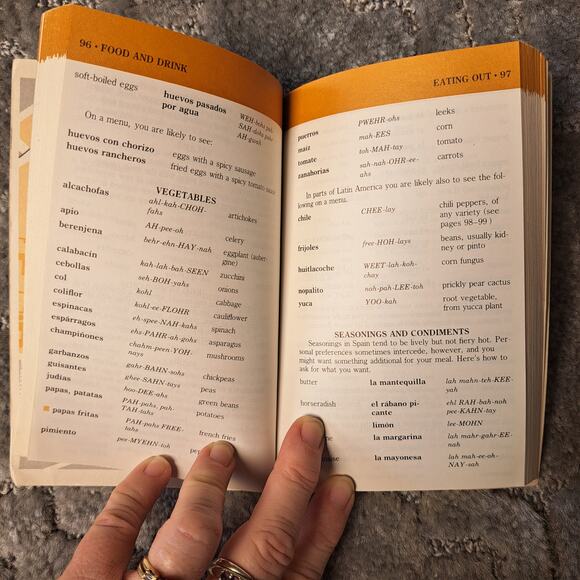 96 • FOOD AND DRINK
soft-boiled eggs huevos pasados WEH-bohs pah-
por agua SAH-dohs pohr
AH-gwah
On a menu, you are likely to see:
huevos con chorizo eggs with a spicy sausage
huevos rancheros fried eggs with a spicy tomato sauce
VEGETABLES
alcachofas ahl-kah-CHOH- artichokes
fahs
apio AH-pee-oh celery
berenjena behr-ehn-HAY-nah eggplant (auber-
gine)
calabacín kah-lah-bah-SEEN zucchini
cebollas seh-BOH-yahs onions
col kohl cabbage
coliflor kohl-ee-FLOHR cauliflower
espinacas eh-spee-NAH-kahs spinach
espárragos ehs-PAHR-ah-gohs asparagus
champiñones chahm-peen-YOH- mushrooms
nays
garbanzos gahr-BAHN-sohs chickpeas
guisantes ghee-SAHN-tays peas
judías hoo-DEE-ahs green beans
papas, patatas PAH-pahs, pah- potatoes
TAH-tahs
papas fritas PAH-pahs FREE- french fries
tahs
pimiento pee-MYEHN-toh
EATING OUT • 97
puerros PWEHR-ohs leeks
maíz mah-EES corn
tomate toh-MAH-tay tomato
zanahorias sah-nah-OHR-ee- carrots
ahs
In parts of Latin America you are likely also to see the fol-
lowing on a menu.
chile CHEE-lay chili peppers, of
any variety (see
pages 98–99)
frijoles free-HOH-lays beans, usually kid-
ney or pinto
huitlacoche WEET-lah-koh- corn fungus
chay
nopalito noh-pah-LEE-toh prickly pear cactus
yuca YOO-kah root vegetable,
from yucca plant
SEASONINGS AND CONDIMENTS
Seasonings in Spain tend to be lively but not fiery hot. Per-
sonal preferences sometimes intercede, however, and you
might want something additional for your meal. Here's how to
ask for what you want.
butter la mantequilla lah mahn-teh-KEE-
yah
horseradish el rábano pi- ehl RAH-bah-noh
cante pee-KAHN-tay
limón lee-MOHN
la margarina lah mahr-gahr-EE-
nah
la mayonesa lah mah-ee-oh-
NAY-sah